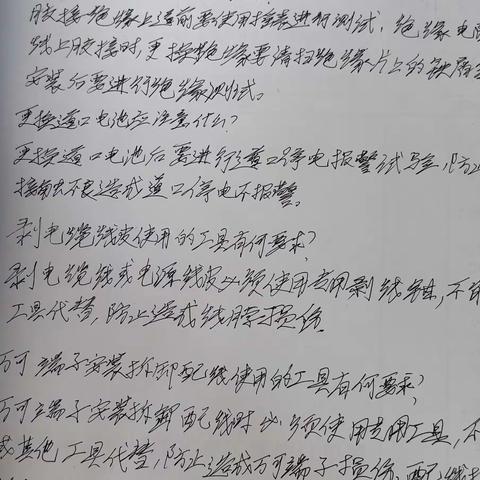 胶接绝缘上道前要使用摇表进行测试，绝缘电阻
线上胶接时，更换绝缘要清扫绝缘片上的铁屑
安装后要进行绝缘测试。
更换道口电池应注意什么？
更换道口电池后要进行道口停电报警试验，防止
接触不良造成道口停电不报警。
剥电缆线皮使用的工具有何要求？
剥电缆线或电源线皮必须使用专用剥线钳，不
工具代替，防止造成线脖损伤。
万可端子安装拆卸配线使用的工具有何要求？
万可端子安装拆卸配线时必须使用专用工具，不
或其他工具代替，防止造成万可端子损伤、配线